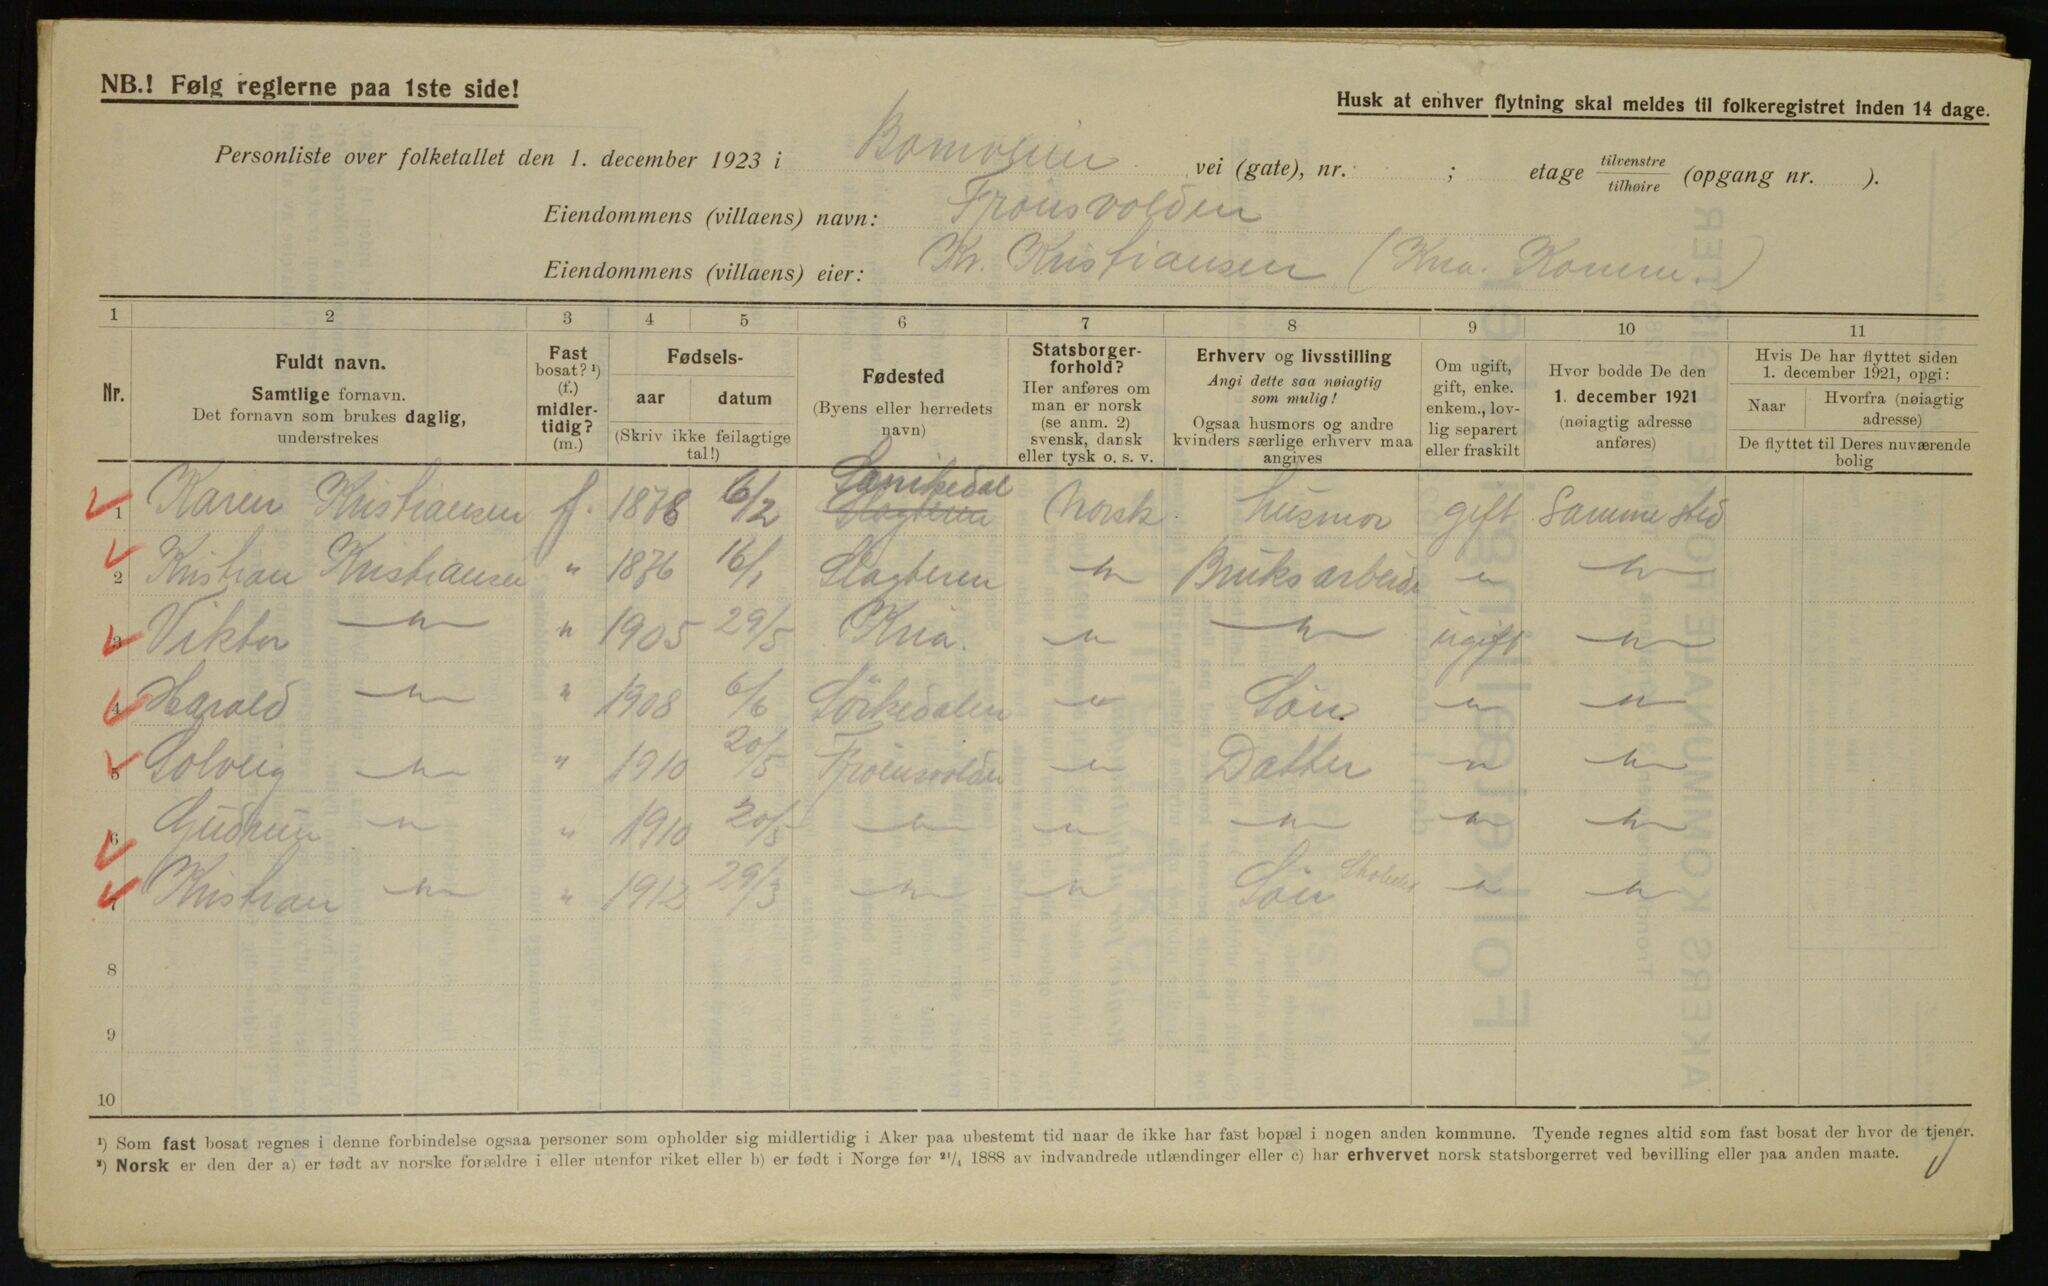 NB.! Følg reglerne paa 1ste side!
Husk at enhver flytning skal meldes til folkeregistret inden 14 dage.
Personliste over folketallet den 1. december 1923 i vei (gate), nr. ; etage tilvenstre/tilhøire (opgang nr. ).
Eiendommens (villaens) navn: Fronsvolden
Eiendommens (villaens) eier: Kr. Kristiansen (Kria. Komm.)
1 2 3 4 5 6 7 8 9 10 11
Nr.
Fuldt navn.
Samtlige fornavn.
Det fornavn som brukes daglig,
understrekes
Fast
bosat? ¹)
(f.)
midler-
tidig?
(m.)
Fødsels-
aar datum
(Skriv ikke feilagtige
tal!)
Fødested
(Byens eller herredets
navn)
Statsborger-
forhold?
Her anføres om
man er norsk
(se anm. 2)
svensk, dansk
eller tysk o. s. v.
Erhverv og livsstilling
Angi dette saa nøiagtig
som mulig!
Ogsaa husmors og andre
kvinders særlige erhverv maa
angives
Om ugift,
gift, enke.
enkem., lov-
lig separert
eller fraskilt
Hvor bodde De den
1. december 1921
(nøiagtig adresse
anføres)
Hvis De har flyttet siden
1. december 1921, opgi:
Naar
Hvorfra (nøiagtig
adresse)
De flyttet til Deres nuværende
bolig
1 Karen Kristiansen f. 1878 6/2 Sanikedal Slagteren Norsk husmor gift Samme sted
2 Kristian Kristiansen " 1876 16/1 Slagteren " Bruksarbeide " "
3 Viktor " " 1905 29/5 Kria. " " ugift "
4 Harald " " 1908 6/6 Sörkedalen " Sön " "
5 Solveig " " 1910 20/5 Froensvolden " Datter " "
6 Gudrun " " 1910 20/5 " " " " "
7 Kristian " " 1912 29/3 " " Sön " "
8
9
10
¹) Som fast bosat regnes i denne forbindelse ogsaa personer som opholder sig midlertidig i Aker paa ubestemt tid naar de ikke har fast bopæl i nogen anden kommune. Tyende regnes altid som fast bosat der hvor de tjener.
²) Norsk er den der a) er født av norske forældre i eller utenfor riket eller b) er født i Norge før 21/4 1888 av indvandrede utlændinger eller c) har erhvervet norsk statsborgerret ved bevilling eller paa anden maate.